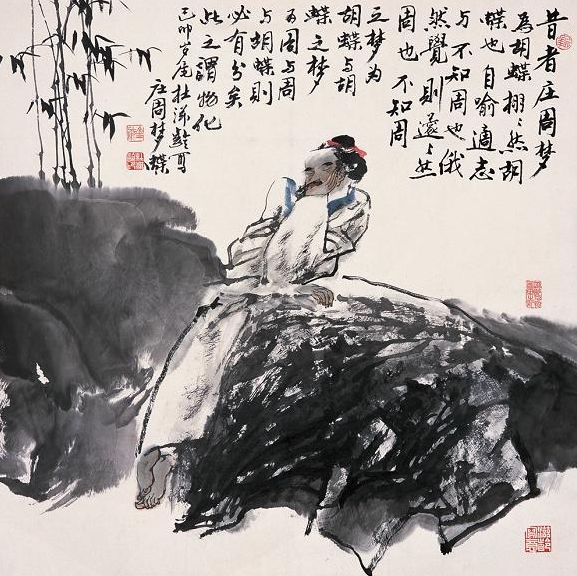 昔者庄周梦
為胡蝶栩〻然胡
蝶也自喻適志
与不知周也俄
然覺则蘧〻然
周也不知周
之梦为
胡蝶与胡
蝶之梦
为周与周
与胡蝶则
必有分矣
此之謂物化
己卯岁尾杜滋龄写
庄周梦蝶